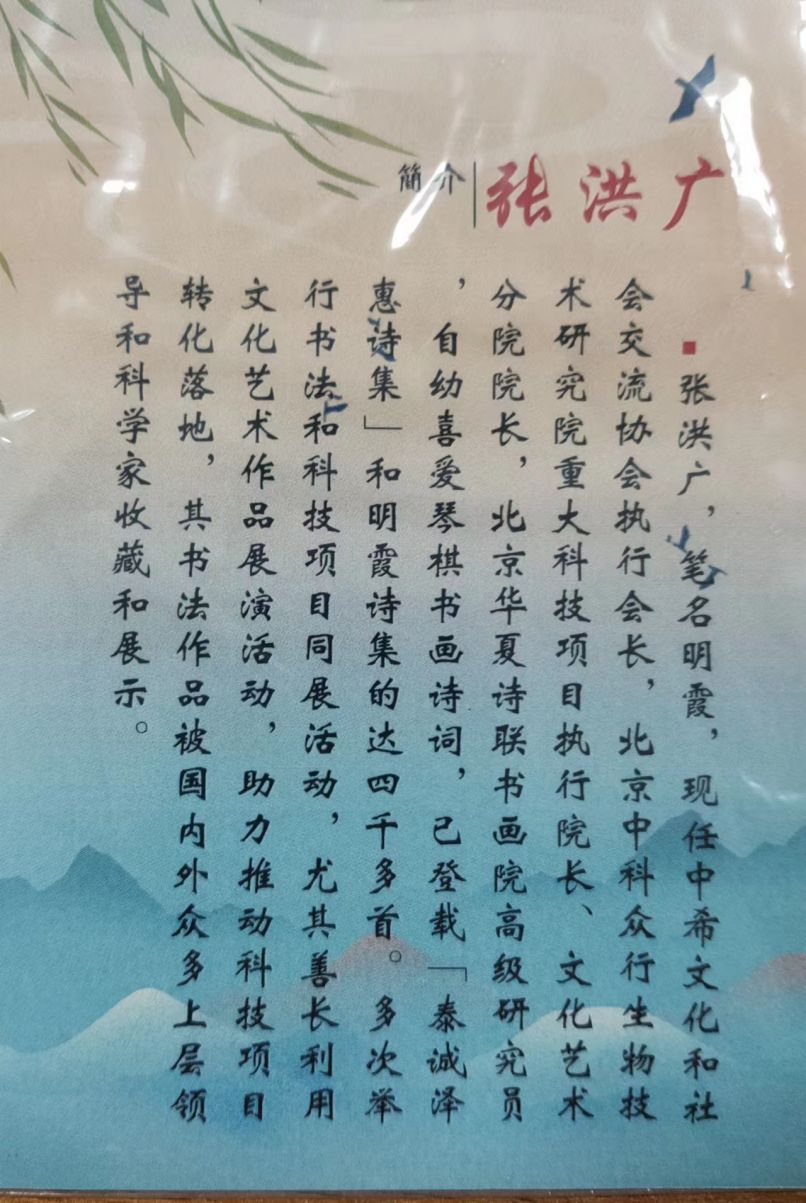 张洪广
簡介
■张洪广，笔名明霞，现任中希文化和社
会交流协会执行会长，北京中科众行生物技
术研究院重大科技项目执行院长、文化艺术
分院院长，北京华夏诗联书画院高级研究员
，自幼喜爱琴棋书画诗词，已登载「泰诚泽
惠诗集」和明霞诗集的达四千多首。多次举
行书法和科技项目同展活动，尤其善长利用
文化艺术作品展演活动，助力推动科技项目
转化落地，其书法作品被国内外众多上层领
导和科学家收藏和展示。